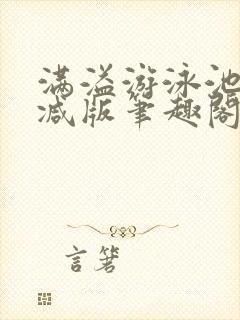 满溢游泳池
减版笔趣阁
言箬